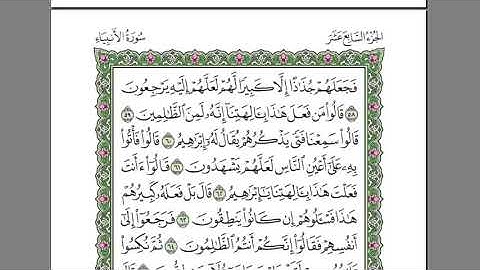 سُورَةُ الأَنبِيَاءِ
الجُزْءُ السَّابِعَ عَشَرَ
فَجَعَلَهُمْ جُذَٰذًا إِلَّا كَبِيرًا لَّهُمْ لَعَلَّهُمْ إِلَيْهِ يَرْجِعُونَ
٥٨ قَالُوا۟ مَن فَعَلَ هَٰذَا بِـَٔالِهَتِنَآ إِنَّهُۥ لَمِنَ ٱلظَّٰلِمِينَ ٥٩
قَالُوا۟ سَمِعْنَا فَتًى يَذْكُرُهُمْ يُقَالُ لَهُۥٓ إِبْرَٰهِيمُ ٦٠ قَالُوا۟ فَأْتُوا۟
بِهِۦ عَلَىٰٓ أَعْيُنِ ٱلنَّاسِ لَعَلَّهُمْ يَشْهَدُونَ ٦١ قَالُوٓا۟ ءَأَنتَ
فَعَلْتَ هَٰذَا بِـَٔالِهَتِنَا يَٰٓإِبْرَٰهِيمُ ٦٢ قَالَ بَلْ فَعَلَهُۥ كَبِيرُهُمْ
هَٰذَا فَسْـَٔلُوهُمْ إِن كَانُوا۟ يَنطِقُونَ ٦٣ فَرَجَعُوٓا۟ إِلَىٰٓ
أَنفُسِهِمْ فَقَالُوٓا۟ إِنَّكُمْ أَنتُمُ ٱلظَّٰلِمُونَ ٦٤ ثُمَّ نُكِسُوا۟